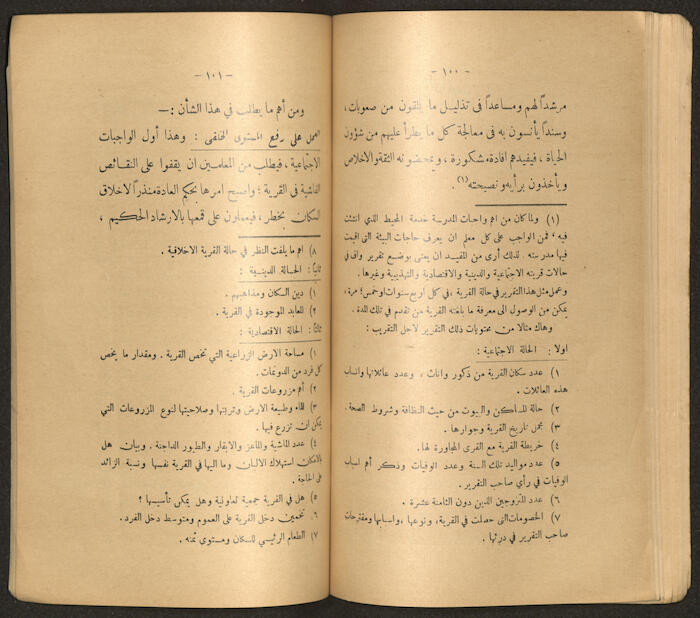 — ١٠٠ —
مرشداً لهم ومساعداً فى تذليل ما يلقون من صعوبات،
وسنداً يأنسون به فى معالجة كل ما يطرأ عليهم من شؤون
الحياة، فيفيدهم افادة مشكورة، ويمحضونه الثقة والاخلاص
ويأخذون برأيه ونصيحته (١).
(١) ولما كان من اهم واجبات المدرسة خدمة المحيط الذي انشئت
فيه، فمن الواجب على كل معلم ان يعرف حاجات البيئة التى اقيمت
فيها مدرسته. لذلك أرى من المفيد ان يعتنى بوضع تقرير واف في
حالات قريته الاجتماعية والدينية والاقتصادية والتهذيبية وغيرها.
وعمل مثل هذا التقرير في حالة القرية، في كل اربع سنوات او خمس؛ مرة،
يمكن من الوصول الى معرفة ما بلغته القرية من تقدم في تلك المدة.
وهاك مثالا من محتويات ذلك التقرير لاجل التقريب:
اولا: الحالة الاجتماعية:
١) عدد سكان القرية من ذكور واناث، وعدد عائلاتها وانساب
هذه العائلات.
٢) حالة المساكن والبيوت من حيث النظافة وشروط الصحة.
٣) مجمل تاريخ القرية وجوارها.
٤) خريطة القرية مع القرى المجاورة لها.
٥) عدد مواليد تلك السنة وعدد الوفيات وذكر أهم اسباب
الوفيات في رأي صاحب التقرير.
٦) عدد المتزوجين الذين دون الثامنة عشرة.
٧) الخصومات التى حصلت في القرية، ونوعها، واسبابها ومقترحات
صاحب التقرير في درئها.
— ١٠١ —
ومن أهم ما يطلب في هذا الشأن: —
العمل على رفع المستوى الخلقى: وهذا أول الواجبات
الاجتماعية، فيطلب من المعلمين ان يقفوا على النقائص
الفاشية في القرية؛ واصبح امرها بحكم العادة منذراً لاخلاق
السكان بخطر، فيعملون على قمعها بالارشاد الحكيم،
٨) اهم ما يلفت النظر في حالة القرية الاخلاقية.
ثانيًا: الحالة الدينية:
١) دين السكان ومذاهبهم.
٢) المعابد الموجودة في القرية.
ثالثًا: الحالة الاقتصادية:
١) مساحة الارض الزراعية التي تخص القرية. ومقدار ما يخص
كل فرد من الدونمات.
٢) أهم مزروعات القرية.
٣) الماء وطبيعة الارض وتربتها وصلاحيتها لنوع المزروعات التي
يمكن ان تزرع فيها.
٤) عدد الماشية والماعز والابقار والطيور الداجنة. وبيان هل
بالامكان استهلاك الالبان وما اليها في القرية نفسها ونسبة الزائد
على الحاجة.
٥) هل في القرية جمعية تعاونية وهل يمكن تأسيسها؟
٦. تخمين دخل القرية على العموم ومتوسط دخل الفرد.
٧) الطعام الرئيسي للسكان ومستوى ثمنه.